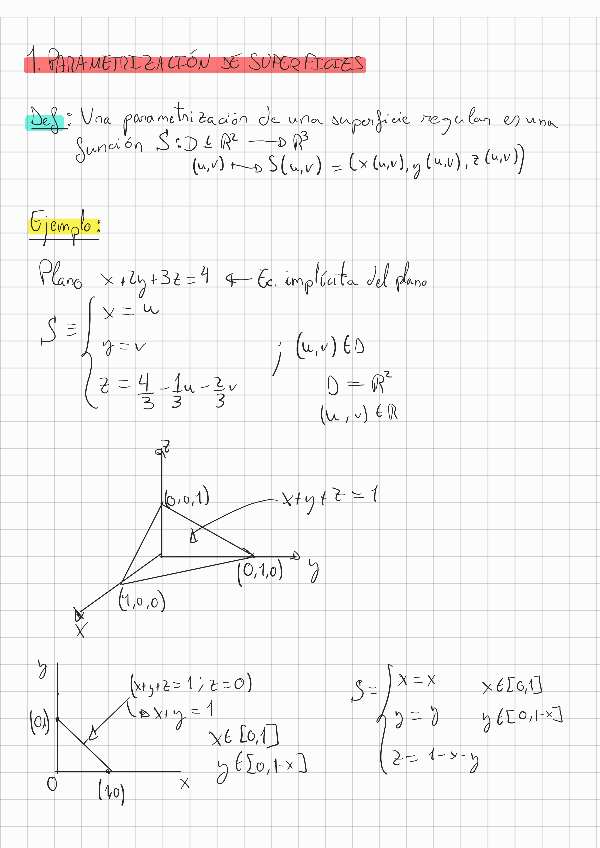 1. PARAMETRIZACIÓN DE SUPERFICIES
Def: Una parametrización de una superficie regular es una
función S: D ⊆ ℝ² → ℝ³
(u,v) ↦ S(u,v) = (x(u,v), y(u,v), z(u,v))
Ejemplo:
Plano x+2y+3z=4 ← Ec. implícita del plano
S ≡ { x = u
y = v ; (u,v) ∈ D
z = 4/3 - 1/3 u - 2/3 v D = ℝ²
(u,v) ∈ ℝ
z
(0,0,1) x+y+z=1
(0,1,0) y
(1,0,0)
x
y
(x+y+z=1 ; z=0)
(0,1) ↳ x+y=1
x∈[0,1]
y∈[0,1-x]
0 (1,0) x
S = { x = x x∈[0,1]
y = y y∈[0,1-x]
z = 1-x-y